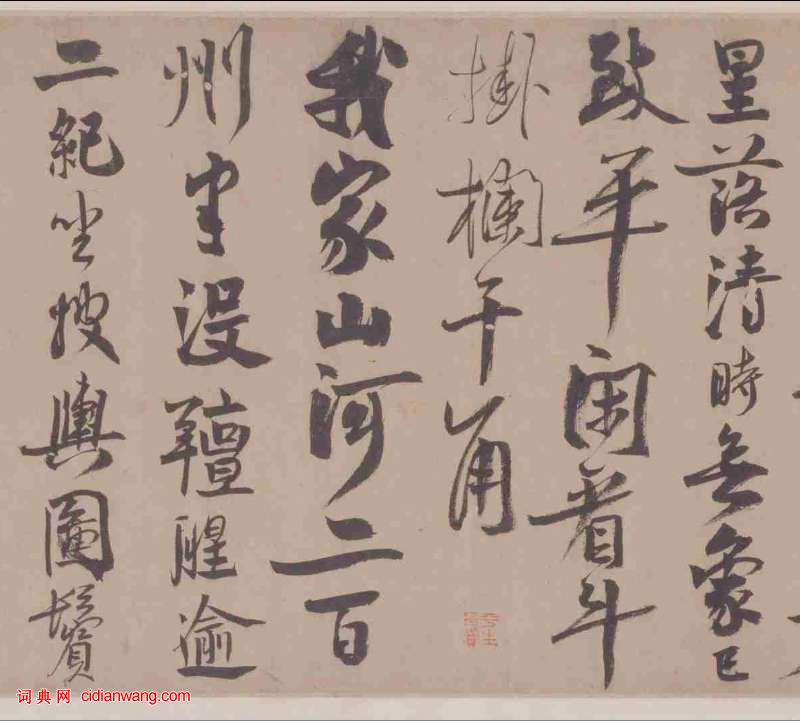 星落清時無象已
致平閑看斗
掛欄干角
我家山河二百
州半没羶腥逾
二紀坐搜輿圖鬢
词典网 cidianwang.com